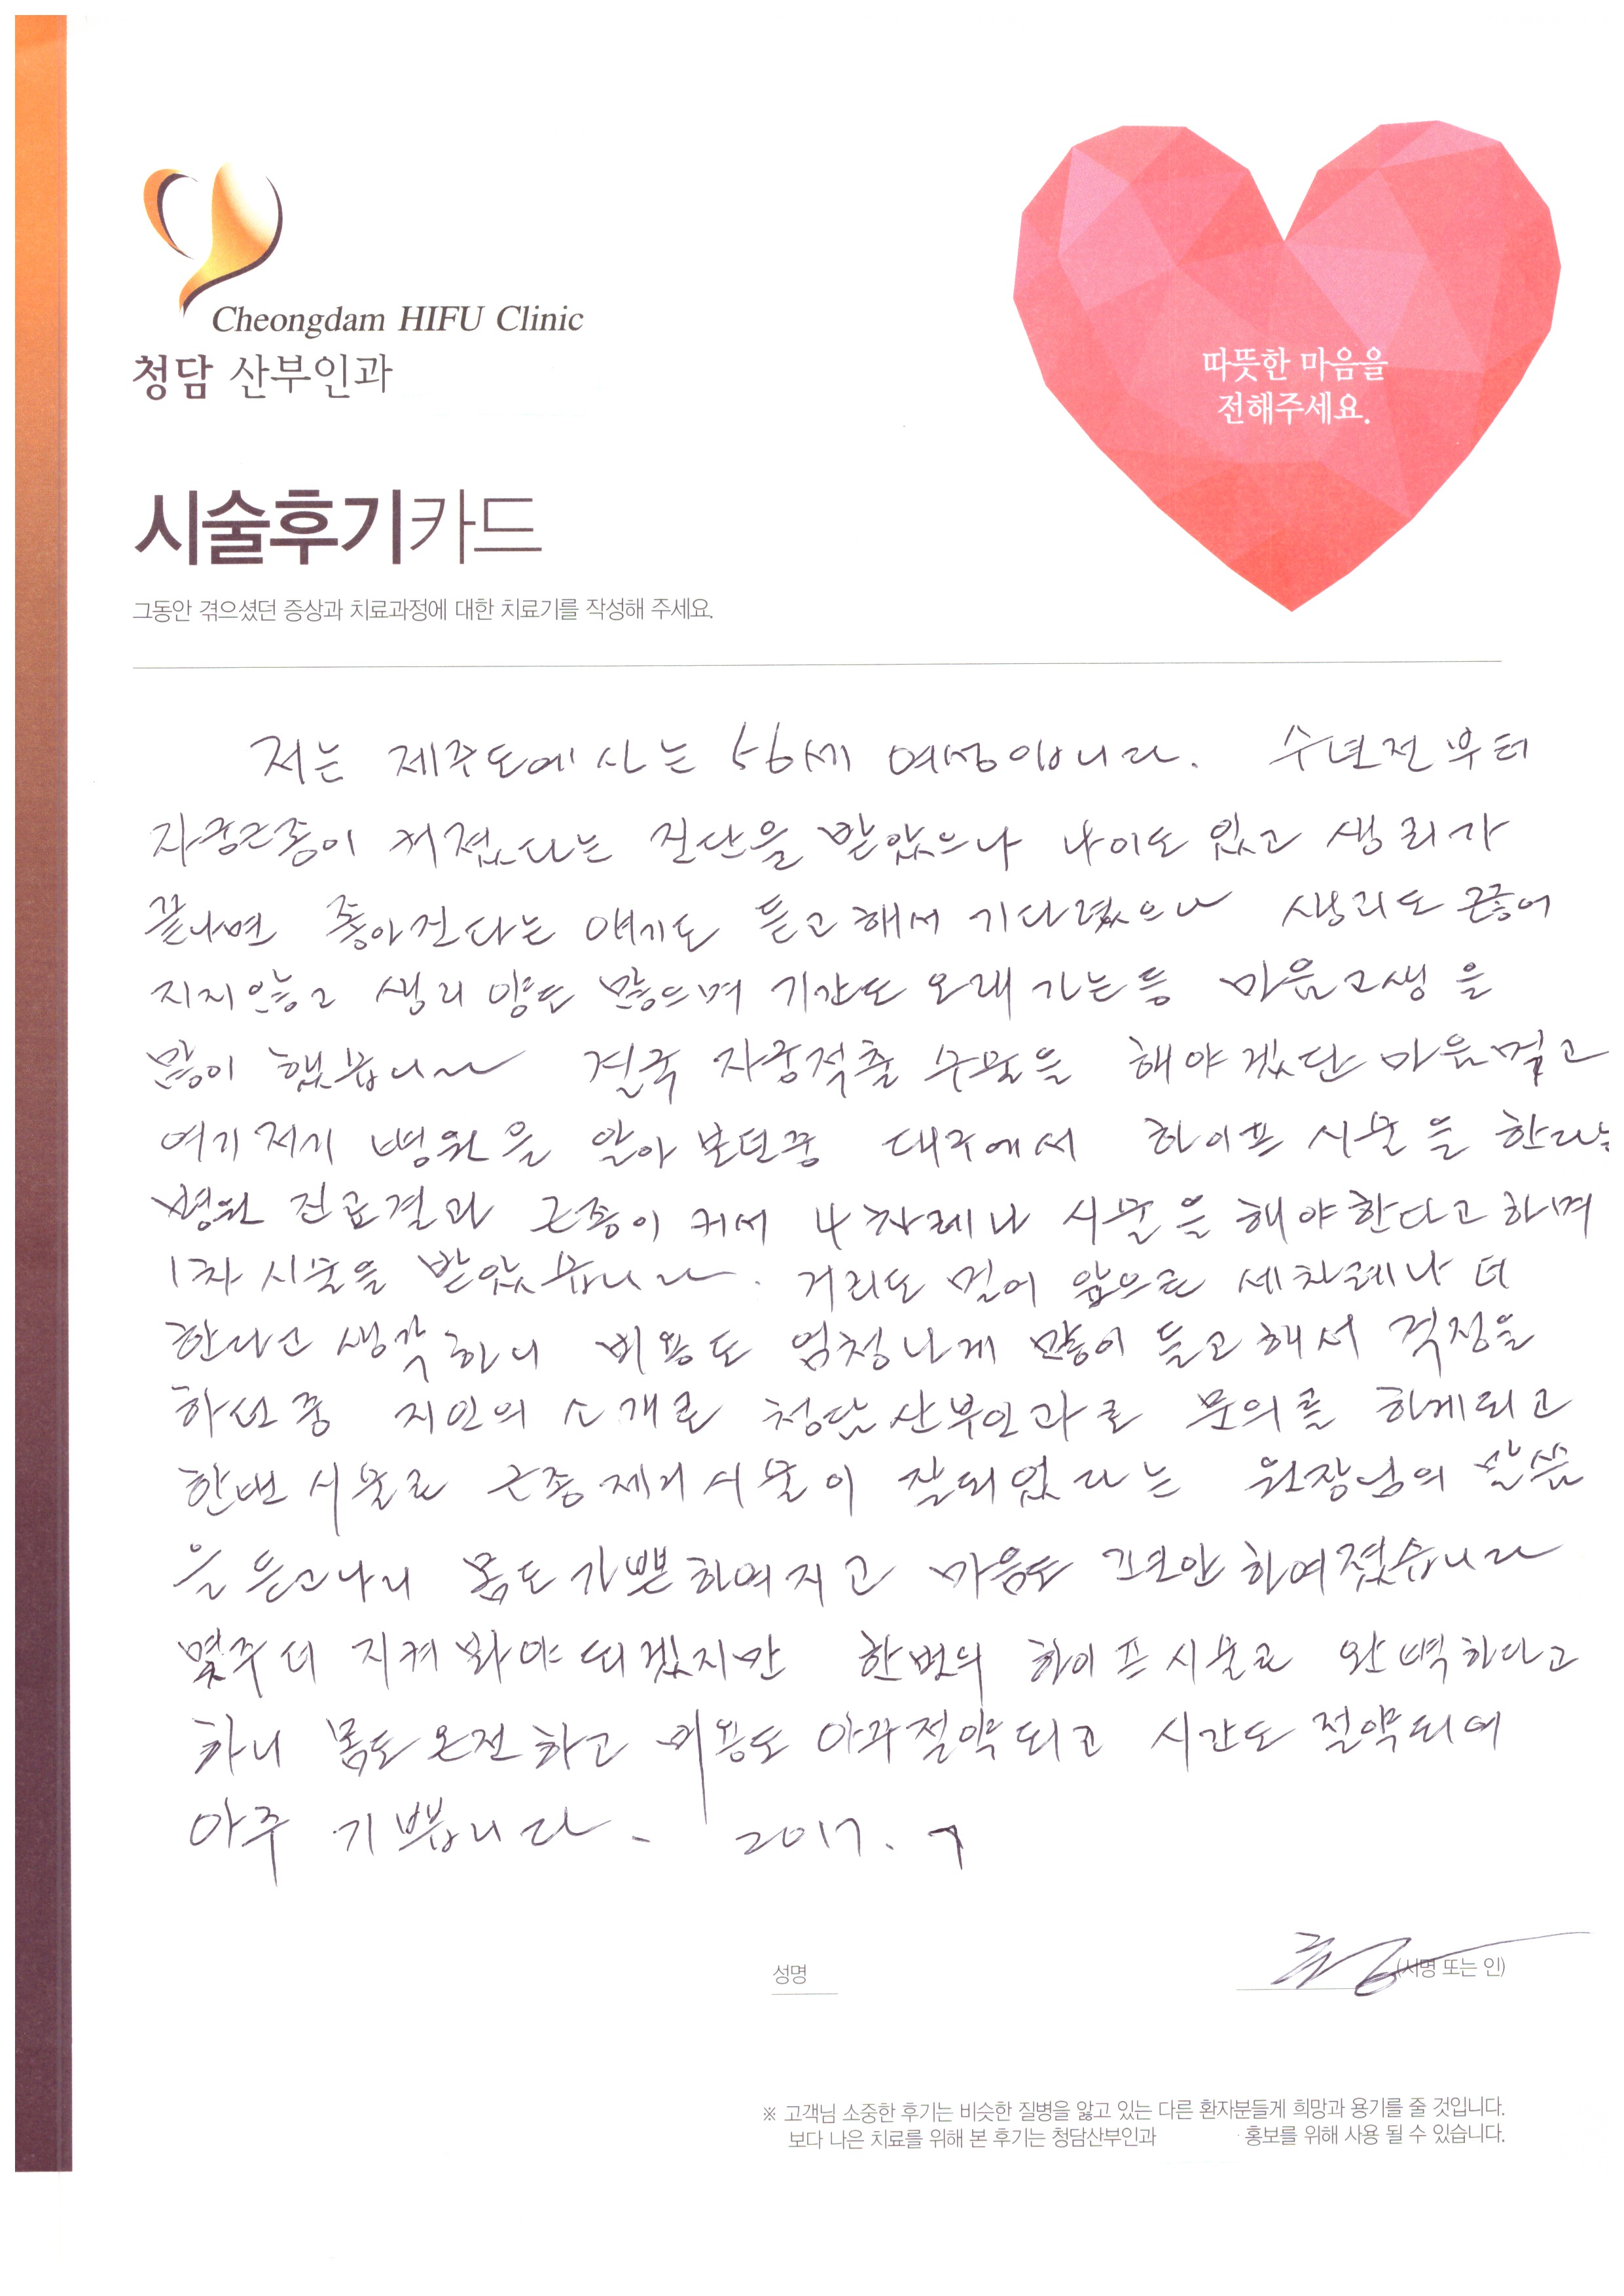 Cheongdam HIFU Clinic
청담 산부인과
따뜻한 마음을
전해주세요.
시술후기카드
그동안 겪으셨던 증상과 치료과정에 대한 치료기를 작성해 주세요.
저는 제주도에 사는 56세 여성입니다. 수년전부터
자궁근종이 커졌다는 진단을 받았으나 나이도 있고 생리가
끝나면 좋아진다는 얘기도 듣고해서 기다렸으나 생리도 끊어
지지않고 생리양도 많으며 기간도 오래가는등 마음고생을
많이 했읍니다 결국 자궁적출 수술을 해야겠단 마음먹고
여기저기 병원을 알아보던중 대구에서 하이프 시술을 한다는
병원 진료결과 근종이 커서 4차례나 시술을 해야한다고하며
1차 시술을 받았읍니다. 거리도 멀어 앞으로 세차례나 더
한다고 생각하니 비용도 엄청나게 많이 들고해서 걱정을
하던중 지인의 소개로 청담산부인과로 문의를 하게되고
한번 시술로 근종제거시술이 잘되었다는 원장님의 말씀
을 듣고나니 몸도 가쁜하여지고 마음도 편안하여졌습니다
몇주더 지켜봐야 되겠지만 한번의 하이프시술로 완벽하다고
하니 몸도 온전하고 비용도 아주절약되고 시간도 절약되어
아주 기쁩니다. 2017. 7
성명
(서명 또는 인)
※ 고객님 소중한 후기는 비슷한 질병을 앓고 있는 다른 환자분들게 희망과 용기를 줄 것입니다.
보다 나은 치료를 위해 본 후기는 청담산부인과 홍보를 위해 사용 될 수 있습니다.